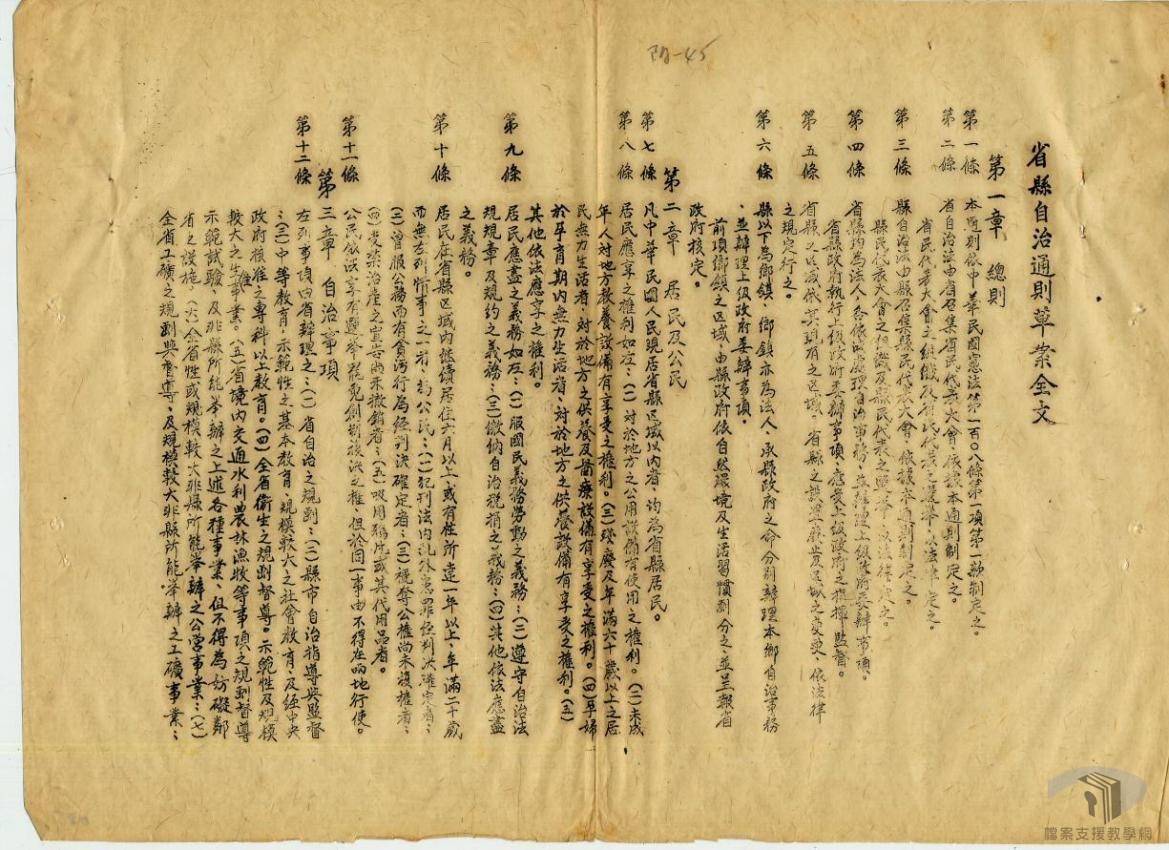 防-45
省縣自治通則草案全文
第一章 總則
第一條 本通則依中華民國憲法第一百〇八條第一項第一款制定之。
第二條 省自治法由省召集省民代表大會、依據本通則制定之。
省民代表大會之組織及省民代表之選舉、以法律定之。
第三條 縣自治法由縣召集縣民代表大會、依據本通則制定之。
縣民代表大會之組織及縣民代表之選舉、以法律定之。
第四條 省縣均為法人、各依法處理自治事務、並辦理上級政府委辦事項。
省縣政府執行上級政府委辦事項、應受上級政府之指揮監督。
第五條 省縣之區域依其現有之區域。省縣之設置廢止及區域之變更、依法律
之規定行之。
第六條 縣以下為鄉鎮、鄉鎮亦為法人、承縣政府之命分別辦理本鄉自治事務
、並辦理上級政府委辦事項。
前項鄉鎮之區域、由縣政府依自然環境及生活習慣劃分之、並呈報省
政府核定。
第二章 居民及公民
第七條 凡中華民國人民現居省縣區域以內者、均為省縣居民。
第八條 居民應享之權利如左：(一)對於地方之公用設備有使用之權利。(二)未成
年人對地方教養設備有享受之權利。(三)殘廢及年滿六十歲以上之居
民無力生活者、對於地方之供養及醫療設備有享受之權利。(四)孕婦
於孕育期內無力生活者、對於地方之供養設備有享受之權利。(五)
其他依法應享之權利。
第九條 居民應盡之義務如左：(一)服國民義務勞動之義務：(二)遵守自治法
規規章及規約之義務：(三)繳納自治稅捐之義務：(四)其他依法應盡
之義務。
第十條 居民在省縣區域內繼續居住六月以上、或有住所達一年以上、年滿二十歲
而無左列情事之一者、為公民：(一)犯刑法內亂外患罪經判決確定者：
(二)曾服公務而有貪污行為經判決確定者：(三)褫奪公權尚未復權者：
(四)受禁治產之宣告尚未撤銷者：(五)吸用鴉片或其代用品者。
第十一條 公民依法享有選舉罷免創制複決之權、但於同一事由不得在兩地行使。
第三章 自治事項
第十二條 左列事項由省辦理之：(一)省自治之規劃：(二)縣市自治指導與監督
：(三)中等教育、示範性之基本教育、規模較大之社會教育及經中央
政府核准之專科以上教育。(四)全省衛生之規劃督導。示範性及規模
較大之衛生事業。(五)省境內交通水利農林漁牧等事項之規劃督導
示範試驗、及非縣所能举辦之上述各種事業、但不得為妨礙鄰
省之設施。(六)全省性或規模較大非縣所能举辦之公營事業：(七)
全省工礦之規劃與督導、及規模較大非縣所能举辦之工礦事業：
檔案支援教學網